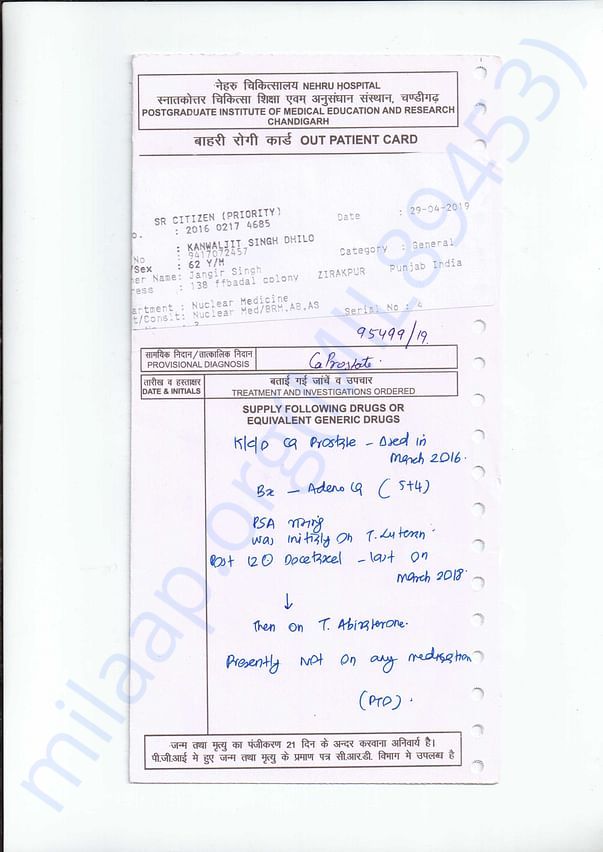 नेहरु चिकित्सालय NEHRU HOSPITAL
स्नातकोत्तर चिकित्सा शिक्षा एवम अनुसंधान संस्थान, चण्डीगढ़
POSTGRADUATE INSTITUTE OF MEDICAL EDUCATION AND RESEARCH
CHANDIGARH
बाहरी रोगी कार्ड OUT PATIENT CARD
SR CITIZEN (PRIORITY) Date : 29-04-2019
o. : 2016 0217 4685
: KANWALJIT SINGH DHILO
No : 9417072457 Category : General
/Sex : 62 Y/M
her Name: Jangir Singh
ess : 138 ffbadal colony ZIRAKPUR Punjab India
artment : Nuclear Medicine
t/Conslt: Nuclear Med/BRM,AB,AS Serial No : 4
95499/19.
सामयिक निदान/तात्कालिक निदान
PROVISIONAL DIAGNOSIS
Ca Prostate.
तारीख व हस्ताक्षर
DATE & INITIALS
बताई गई जांचें व उपचार
TREATMENT AND INVESTIGATIONS ORDERED
SUPPLY FOLLOWING DRUGS OR
EQUIVALENT GENERIC DRUGS
K/c/o Ca Prostate - in
March 2016.
Bx - Adeno Ca (5+4)
PSA rising
was initially on T.
Post 12 Docetaxel - last on
March 2018.
↓
Then on T. Abiraterone.
Presently NOT on any medication
(PTO).
जन्म तथा मृत्यु का पंजीकरण 21 दिन के अन्दर करवाना अनिवार्य है।
पी.जी.आई मे हुए जन्म तथा मृत्यु के प्रमाण पत्र सी.आर.डी. विभाग मे उपलब्ध है
milaap.org (MLI 89453)